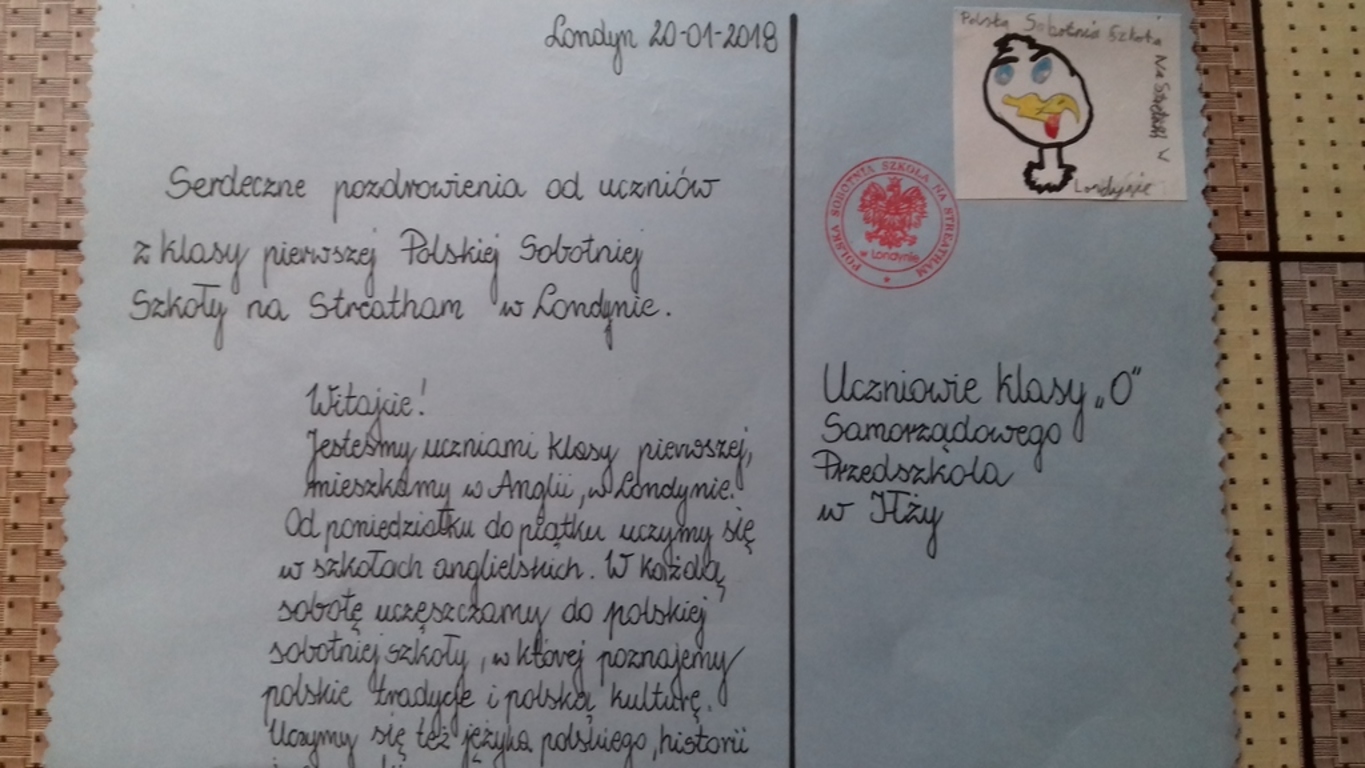 Londyn 20-01-2018
Serdeczne pozdrowienia od uczniów
z klasy pierwszej Polskiej Sobotniej
Szkoły na Streatham w Londynie.
Witajcie!
Jesteśmy uczniami klasy pierwszej,
mieszkamy w Anglii, w Londynie.
Od poniedziałku do piątku uczymy się
w szkołach angielskich. W każdą
sobotę uczęszczamy do polskiej
sobotniej szkoły, w której poznajemy
polskie tradycje i polską kulturę.
Uczymy się też języka polskiego, historii
Polska Sobotnia Szkoła
Na
w
Londynie
POLSKA SOBOTNIA SZKOŁA NA STREATHAM
* Londynie *
Uczniowie klasy „0”
Samorządowego
Przedszkola
w Iłży